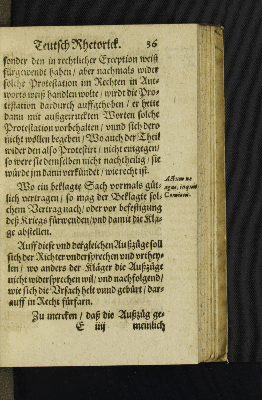 Teutsch Rhetorick. 36
sonder den in rechtlicher Exception weiß
fürgewendt haben / aber nachmals wider
solche Protestation im Rechten in Ant-
worts weiß handlen wolte / würdt die Pro-
testation dardurch auffgehebt / er hette
dann mit außgetruckten Worten solche
Protestation vorbehalten / vnnd sich dero
nicht wöllen begeben / Wo auch der Theil
wider den also Protestirt / nicht entgegen /
so were sie demselben nicht nachtheilig / sie
würde jm dann verkündet / wie recht ist.
Wo ein beklagte Sach vormals güt-
lich vertragen / so mag der Beklagte sol-
chem Vertrag nach / oder vor befestigung
deß Kriegs fürwenden / vnd damit die Kla-
ge abstellen.
Auff diese vnd dergleichen Außzüge soll
sich der Richter vndersprechen vnd vrthey-
len / wo anders der Kläger die Außzüge
nicht widersprechen wil / vnd nachfolgend /
wie sich die Vrsach helt vnnd gebürt / dar-
auff in Recht fürfarn.
Zu mercken / daß die Außzüg ge-
E iiij meinlich